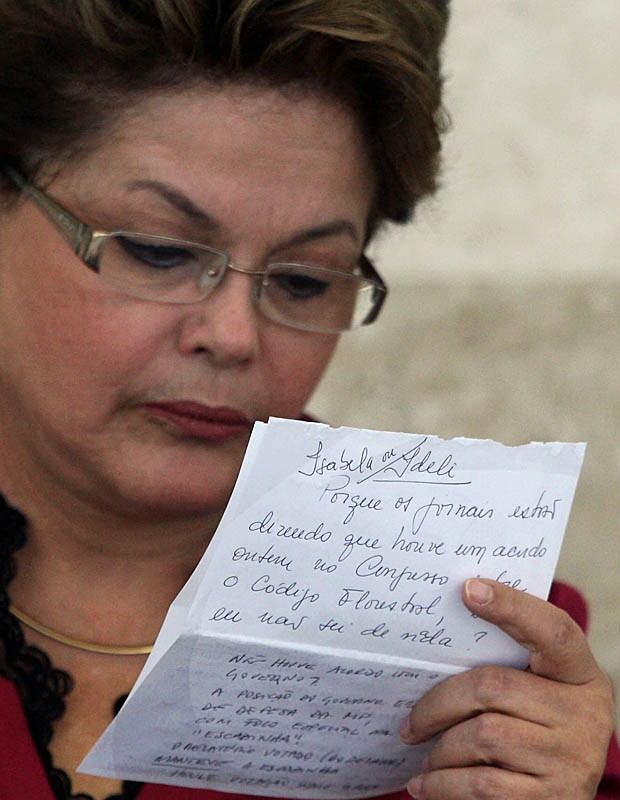 Isabela ou Ideli
Porque os jornais estão
dizendo que houve um acordo
ontem no Congresso sobre
o Código Florestal,
eu não sei de nada?
NÃO HOUVE ACORDO COM O
GOVERNO?
A POSIÇÃO DO GOVERNO
DE DEFESA DA MP
COM FOCO ESPECIAL NA
"ESCADINHA"
O RELATÓRIO VOTADO
MANTEVE A ESCADINHA
HOUVE